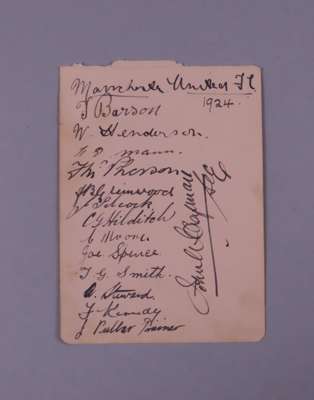 Manchester United FC
1924.
F Barson
W. Henderson.
H. D. Mann.
F Mc Pherson
J Silcock
C G Hilditch
C Moore.
Joe Spence.
T. G. Smith.
A. Steward.
F Kennedy
J Pullar Trainer
Chapman Sec